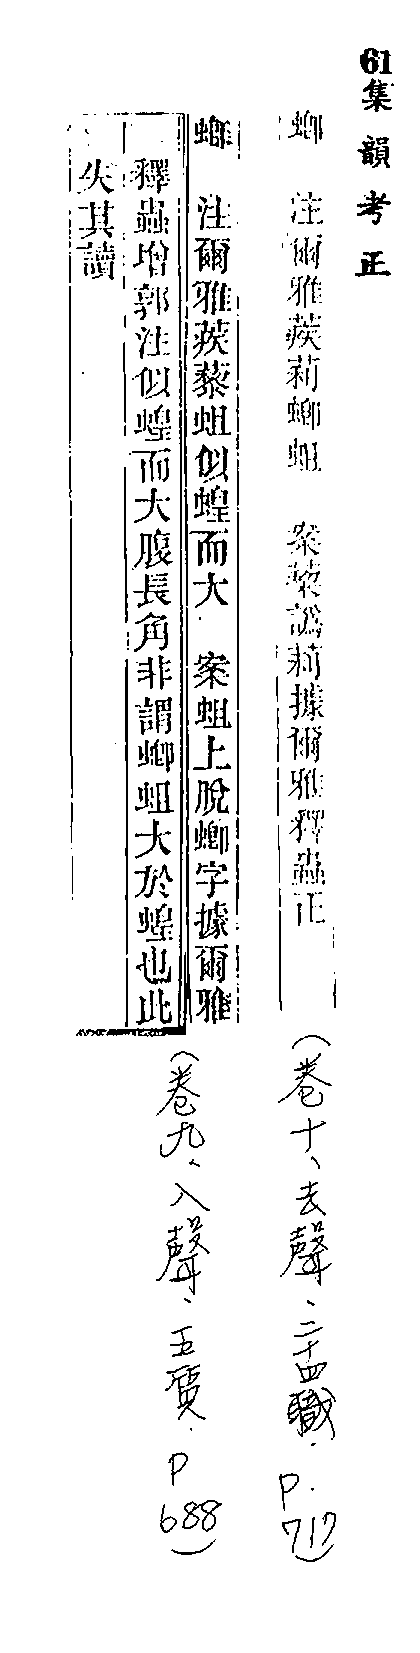 61集韻考正
蝍　注爾雅蒺莉蝍蛆　案藜譌莉據爾雅釋蟲正
(卷十、去聲、二十四職. P. 717)
蝍　注爾雅蒺藜蛆似蝗而大　案蛆上脫蝍字據爾雅
釋蟲增郭注似蝗而大腹長角非謂蝍蛆大於蝗也此
失其讀
(卷九、入聲、五質. P 688)